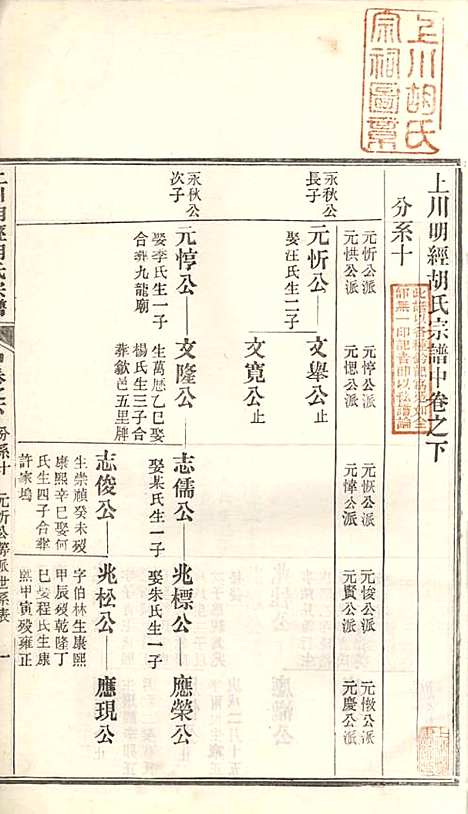 上川胡氏
宗祠圖票
上川明經胡氏宗譜中卷之下
分系十
元忻公派
元恠公派
元惇公派
元愢公派
元恢公派
元愅公派
元悛公派
元賓公派
元慶公派
永秋公
長子
元忻公
娶汪氏生二子
文舉公止
文寬公止
永秋公
次子
元惇公
娶李氏生一子
合葬九龍廟
文隆公
生萬曆乙巳娶
楊氏生三子合
葬歙邑五里牌
志儒公
娶某氏生一子
兆標公
娶朱氏生一子
應榮公止
志俊公
生崇禎癸未歿
康熙辛巳娶何
氏生四子合葬
許家塢
兆松公
字伯林生康熙
甲辰歿乾隆丁
巳娶程氏生康
熙甲寅歿雍正
應現公止
上川明經胡氏宗譜
分系十
元忻公等派世系表
一